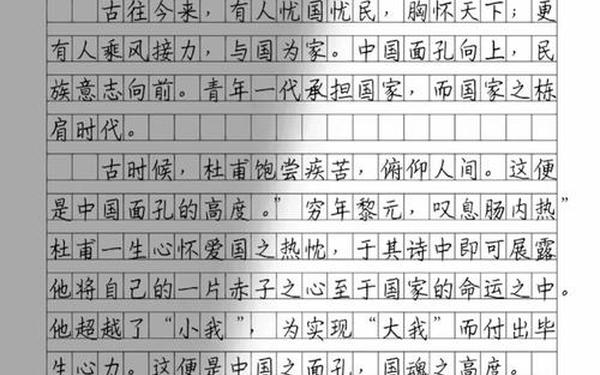 古往今来，有人忧国忧民，胸怀天下；更
有人乘风接力，与国为家。中国面孔向上，民
族意志向前。青年一代承担国家，而国家之栋
肩时代。
古时候，杜甫饱尝疾苦，俯仰人间。这便
是中国面孔的高度。”穷年黎元，叹息肠内热”
杜甫一生心怀爱国之热忱，于其诗中即可展露
他将自己的一片赤子之心至于国家的命运之中。
他超越了“小我”，为实现“大我”而付出毕
生心力。这便是中国之面孔，国魂之高度。